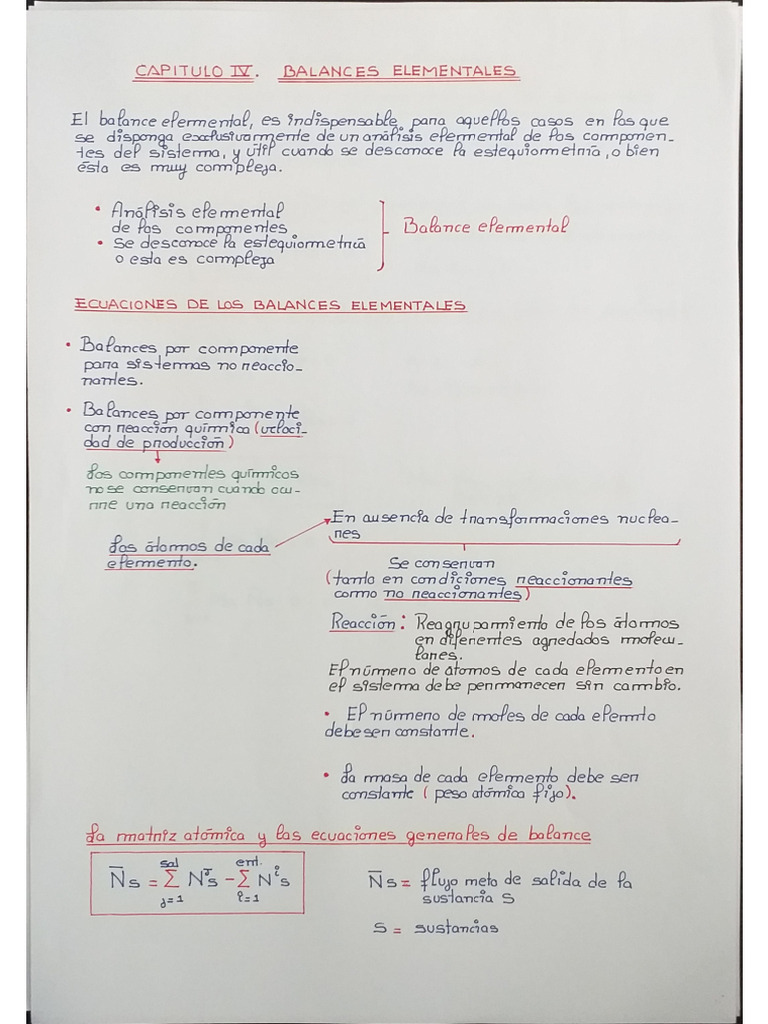 CAPITULO IV. BALANCES ELEMENTALES
El balance elemental, es indispensable para aquellos casos en los que
se disponga exclusivamente de un análisis elemental de los componen-
tes del sistema, y útil cuando se desconoce la estequiometría, o bien
ésta es muy compleja.
• Análisis elemental
de los componentes
• Se desconoce la estequiometría
o esta es compleja
Balance elemental
ECUACIONES DE LOS BALANCES ELEMENTALES
• Balances por componente
para sistemas no reaccio-
nantes.
• Balances por componente
con reacción química (veloci-
dad de producción)
Los componentes químicos
no se conservan cuando ocu-
rre una reacción
Los átomos de cada
elemento.
En ausencia de transformaciones nuclea-
res
Se conservan
(tanto en condiciones reaccionantes
como no reaccionantes)
Reacción: Reagrupamiento de los átomos
en diferentes agredados molecu-
lares.
El número de atomos de cada elemento en
el sistema debe permanecer sin cambio.
• El número de moles de cada elemto
debe ser constante.
• La masa de cada elemento debe ser
constante (peso atómica fijo).
La matriz atómica y las ecuaciones generales de balance
N̄s = Σ(j=1, sal) Nʲs - Σ(i=1, ent.) Nⁱs
N̄s = flujo meto de salida de la
sustancia S
S = sustancias